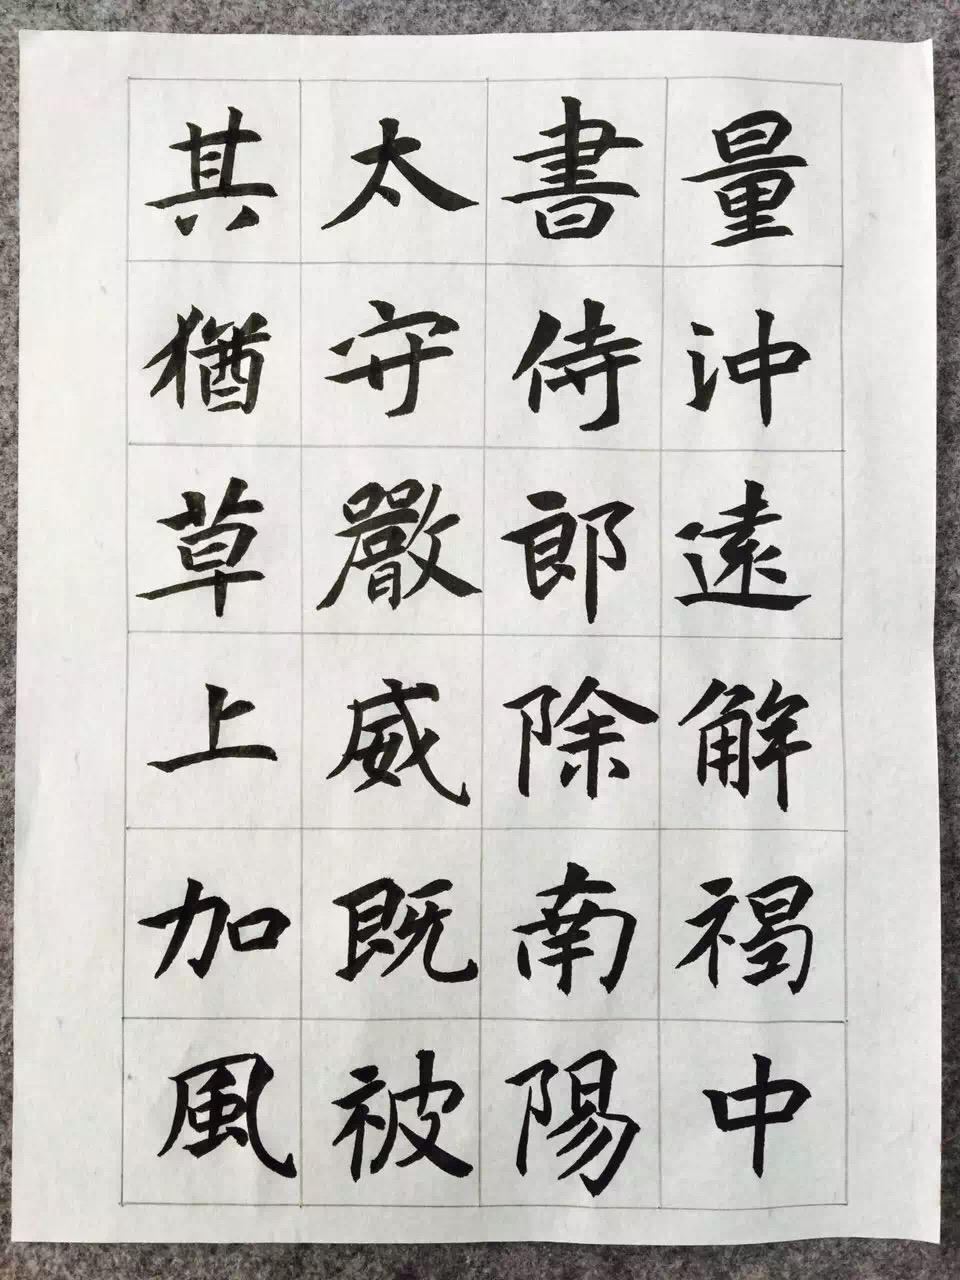 量沖遠解褐中
書侍郎除南陽
太守嚴威既被
其猶草上加風